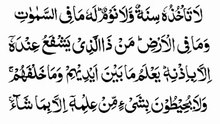 لَا تَاْخُذُهٗ سِنَةٌ وَّلَا نَوْمٌ ؕ لَهٗ مَا فِی السَّمٰوٰتِ
وَمَا فِی الْاَرْضِ ؕ مَنْ ذَا الَّذِیْ یَشْفَعُ عِنْدَهٗۤ
اِلَّا بِاِذْنِهٖ ؕ یَعْلَمُ مَا بَیْنَ اَیْدِیْهِمْ وَمَا خَلْفَهُمْ ۚ
وَلَا یُحِیْطُوْنَ بِشَیْءٍ مِّنْ عِلْمِهٖۤ اِلَّا بِمَا شَآءَ ۚ